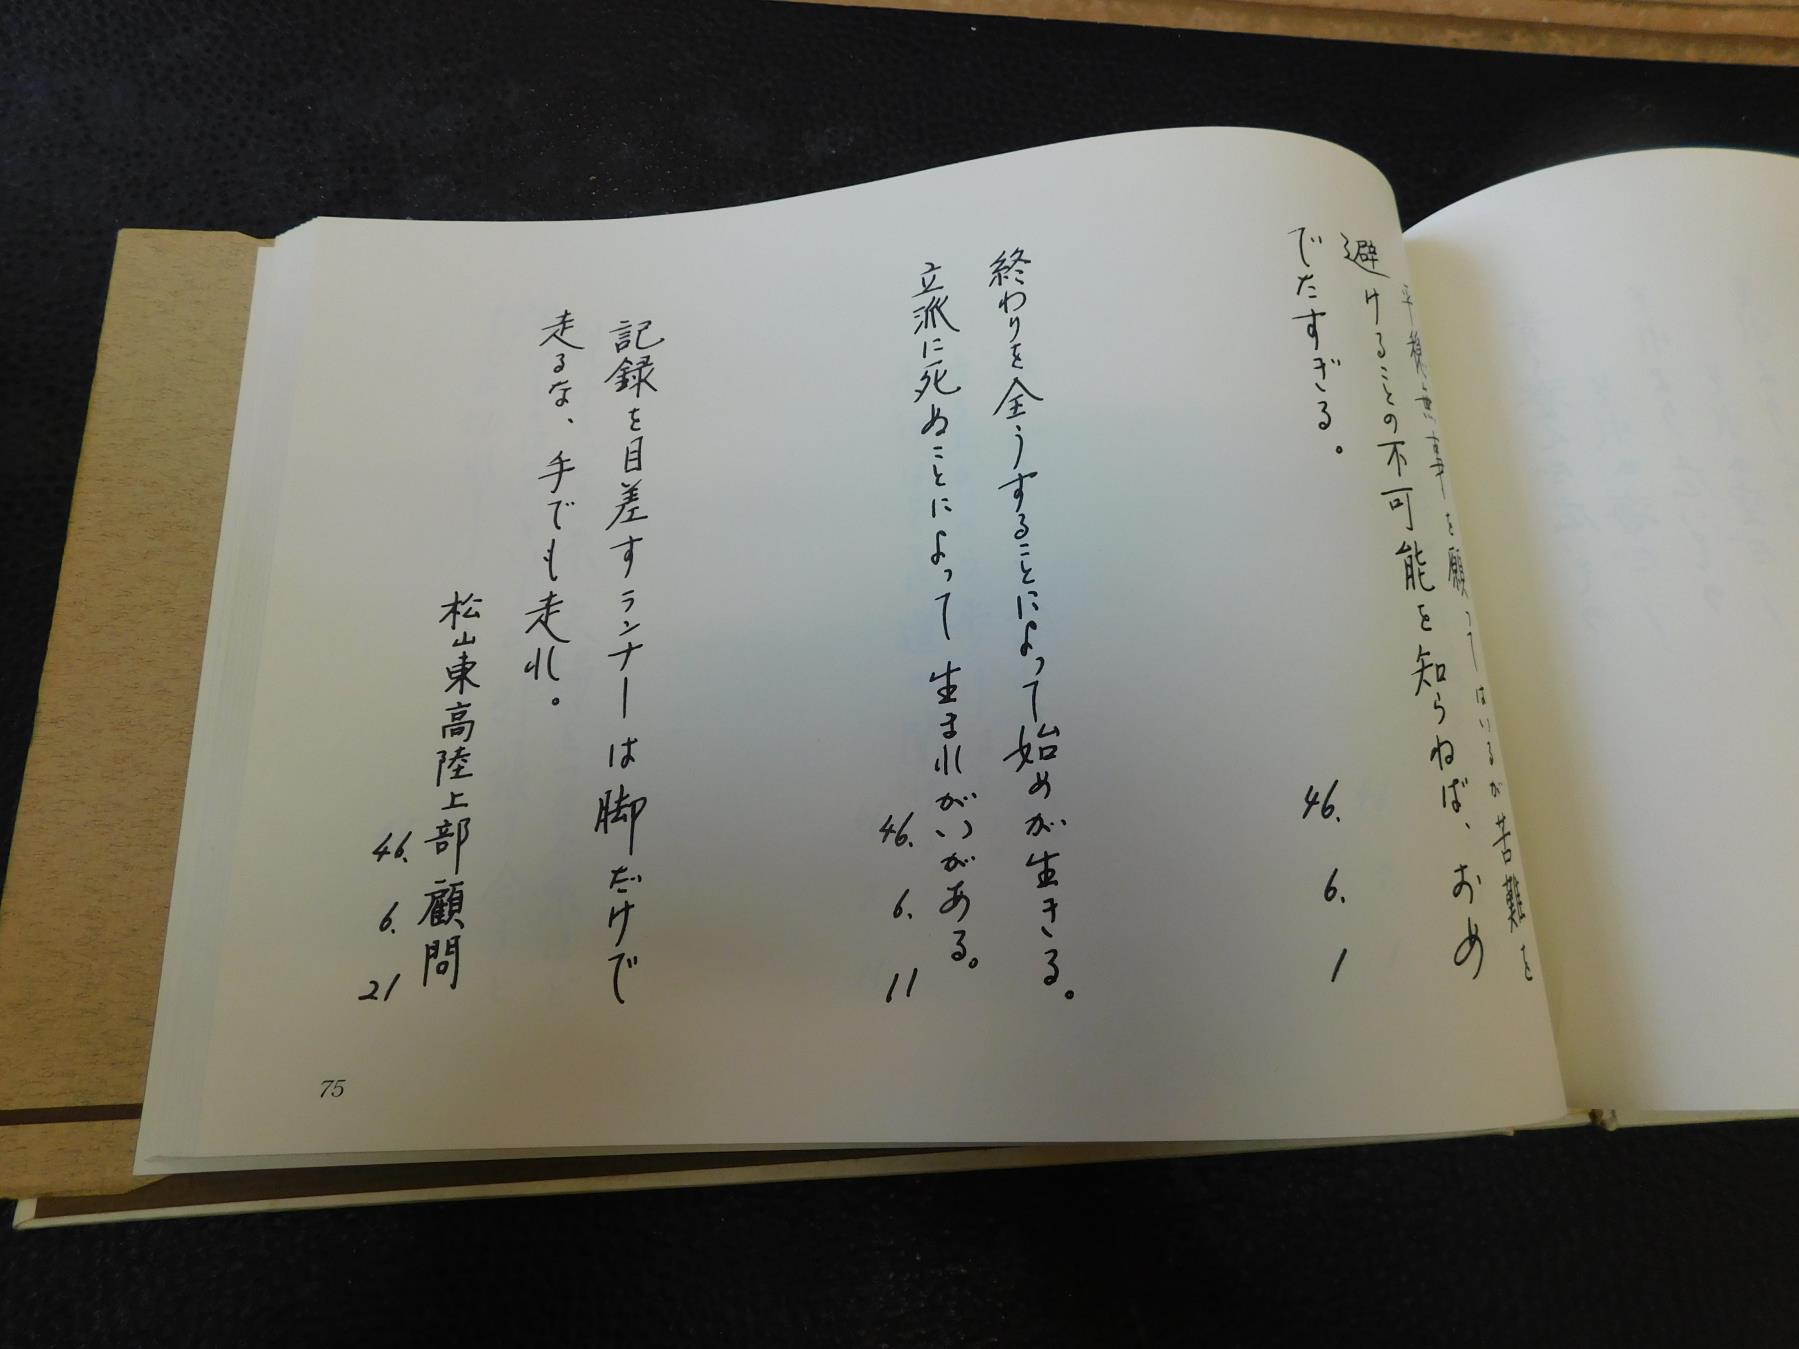 平穏無事を願ってはいるが苦難を
避けることの不可能を知らねば、おめ
でたすぎる。
46. 6. 1
終わりを全うすることによって始めが生きる。
立派に死ぬことによって生まれがいがある。
46. 6. 11
記録を目差すランナーは脚だけで
走るな、手でも走れ。
松山東高陸上部顧問
46. 6. 21
75